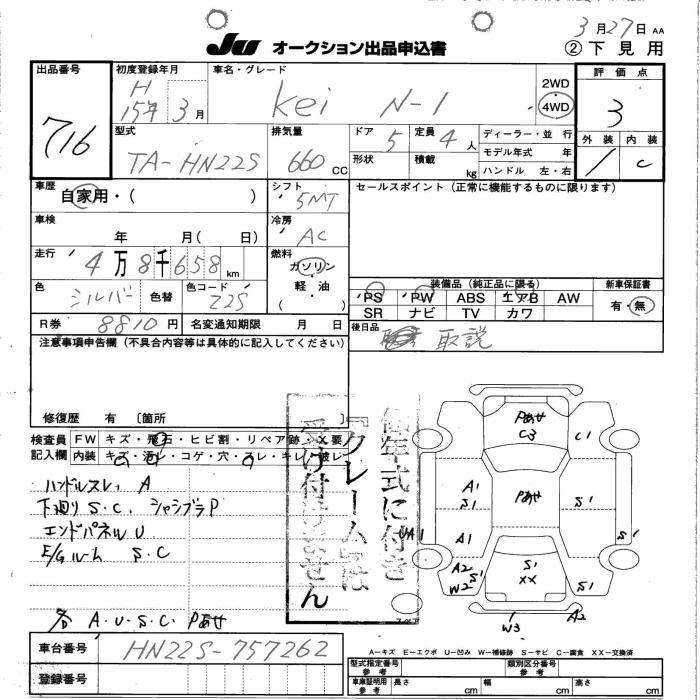 3月27日 AA
JU オークション出品申込書
②下見用
出品番号
716
初度登録年月
H
15年 3月
車名・グレード
Kei N-1
2WD
4WD
評価点
3
外装 内装
C
型式
TA-HN22S
排気量
660 CC
ドア 5
定員 4 人
形状
積載 kg
ディーラー・並行
モデル年式 年
ハンドル 左・右
車歴
自家用・( )
シフト
5MT
セールスポイント(正常に機能するものに限ります)
車検
年 月( 日)
冷房
AC
走行
4万8千658km
燃料
ガソリン
軽油
( )
色
シルバー
色替
色コード
Z2S
装備品(純正品に限る)
PS PW ABS エアB AW
SR ナビ TV カワ
新車保証書
有・無
R券 8810円
名変通知期限 月 日
後日品
取説
注意事項申告欄(不具合内容等は具体的に記入してください)
修復歴 有 〔箇所 〕
検査員
記入欄
FW キズ・飛石・ヒビ割・リペア跡・X要
内装 キズ・汚レ・コゲ・穴・スレ・キレ・破レ
ハンドルスレ、A
下廻り S.C. シャシブラP
エンドパネルU
E/Gルーム S.C
各 A.U.S.C Pあせ
低年式に付き
『クレーム』は
受け付けません
Pあせ
C3
C1
A1
S1
Pあせ
S1
UA1
A1
S1
A2
S1
W2
S1
XX
S1
スペア
W3
A2
車台番号
HN22S-757262
登録番号
A-キズ E-エクボ U-凹み W-補修跡 S-サビ C-腐食 XX-交換済
型式指定番号
参考
類別区分番号
参考
車庫証明用
参考
長さ cm 幅 cm 高さ cm